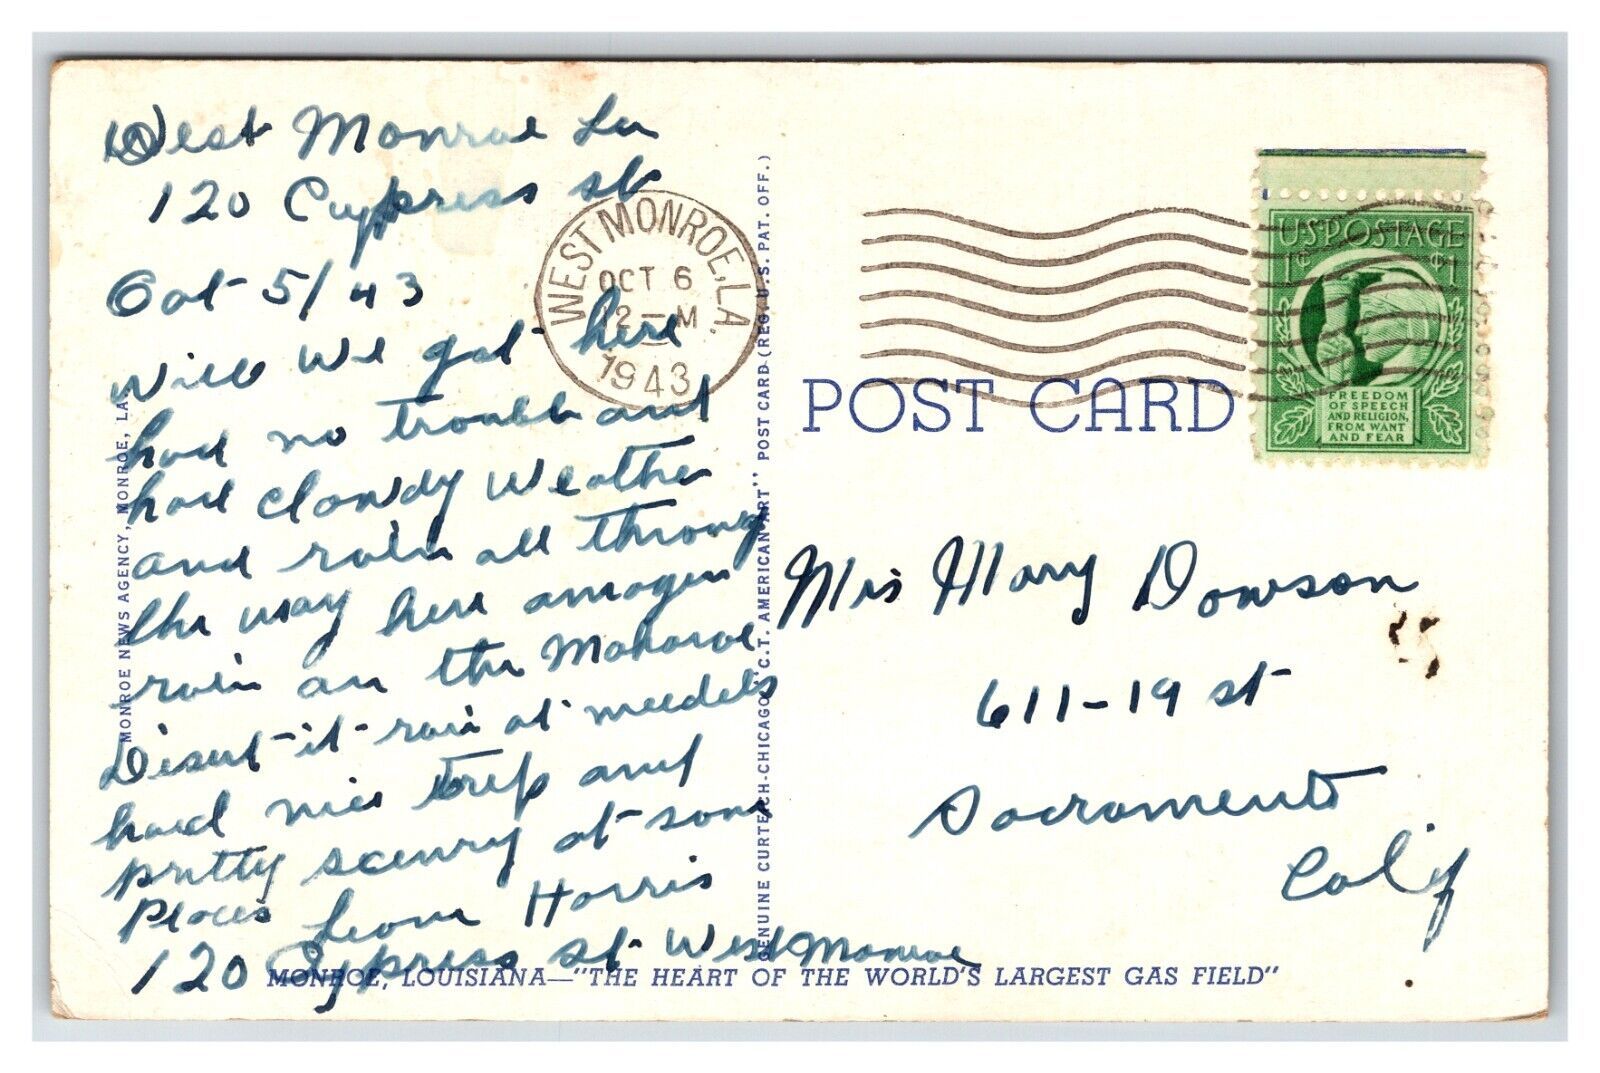 West Monroe La
120 Cypress st
Oct 5/43
Will we got here
had no trouble and
had clowdy weather
and rain all throug
the way here
rain on the
Desert it rain at needels
had nice trip and
pretty scenry at some
Places
Leona Harris
120 Cypress st West Monroe
WEST MONROE, LA.
OCT 6
12-M
1943
U.S. POSTAGE
1¢ 1¢
FREEDOM
OF SPEECH
AND RELIGION,
FROM WANT
AND FEAR
POST CARD
Mrs Mary Dowson
611-19 st
Sacramento
Calif
MONROE NEWS AGENCY, MONROE, LA.
GENUINE CURTEICH-CHICAGO "C.T. AMERICAN ART" POST CARD (REG. U.S. PAT. OFF.)
MONROE, LOUISIANA—"THE HEART OF THE WORLD'S LARGEST GAS FIELD"